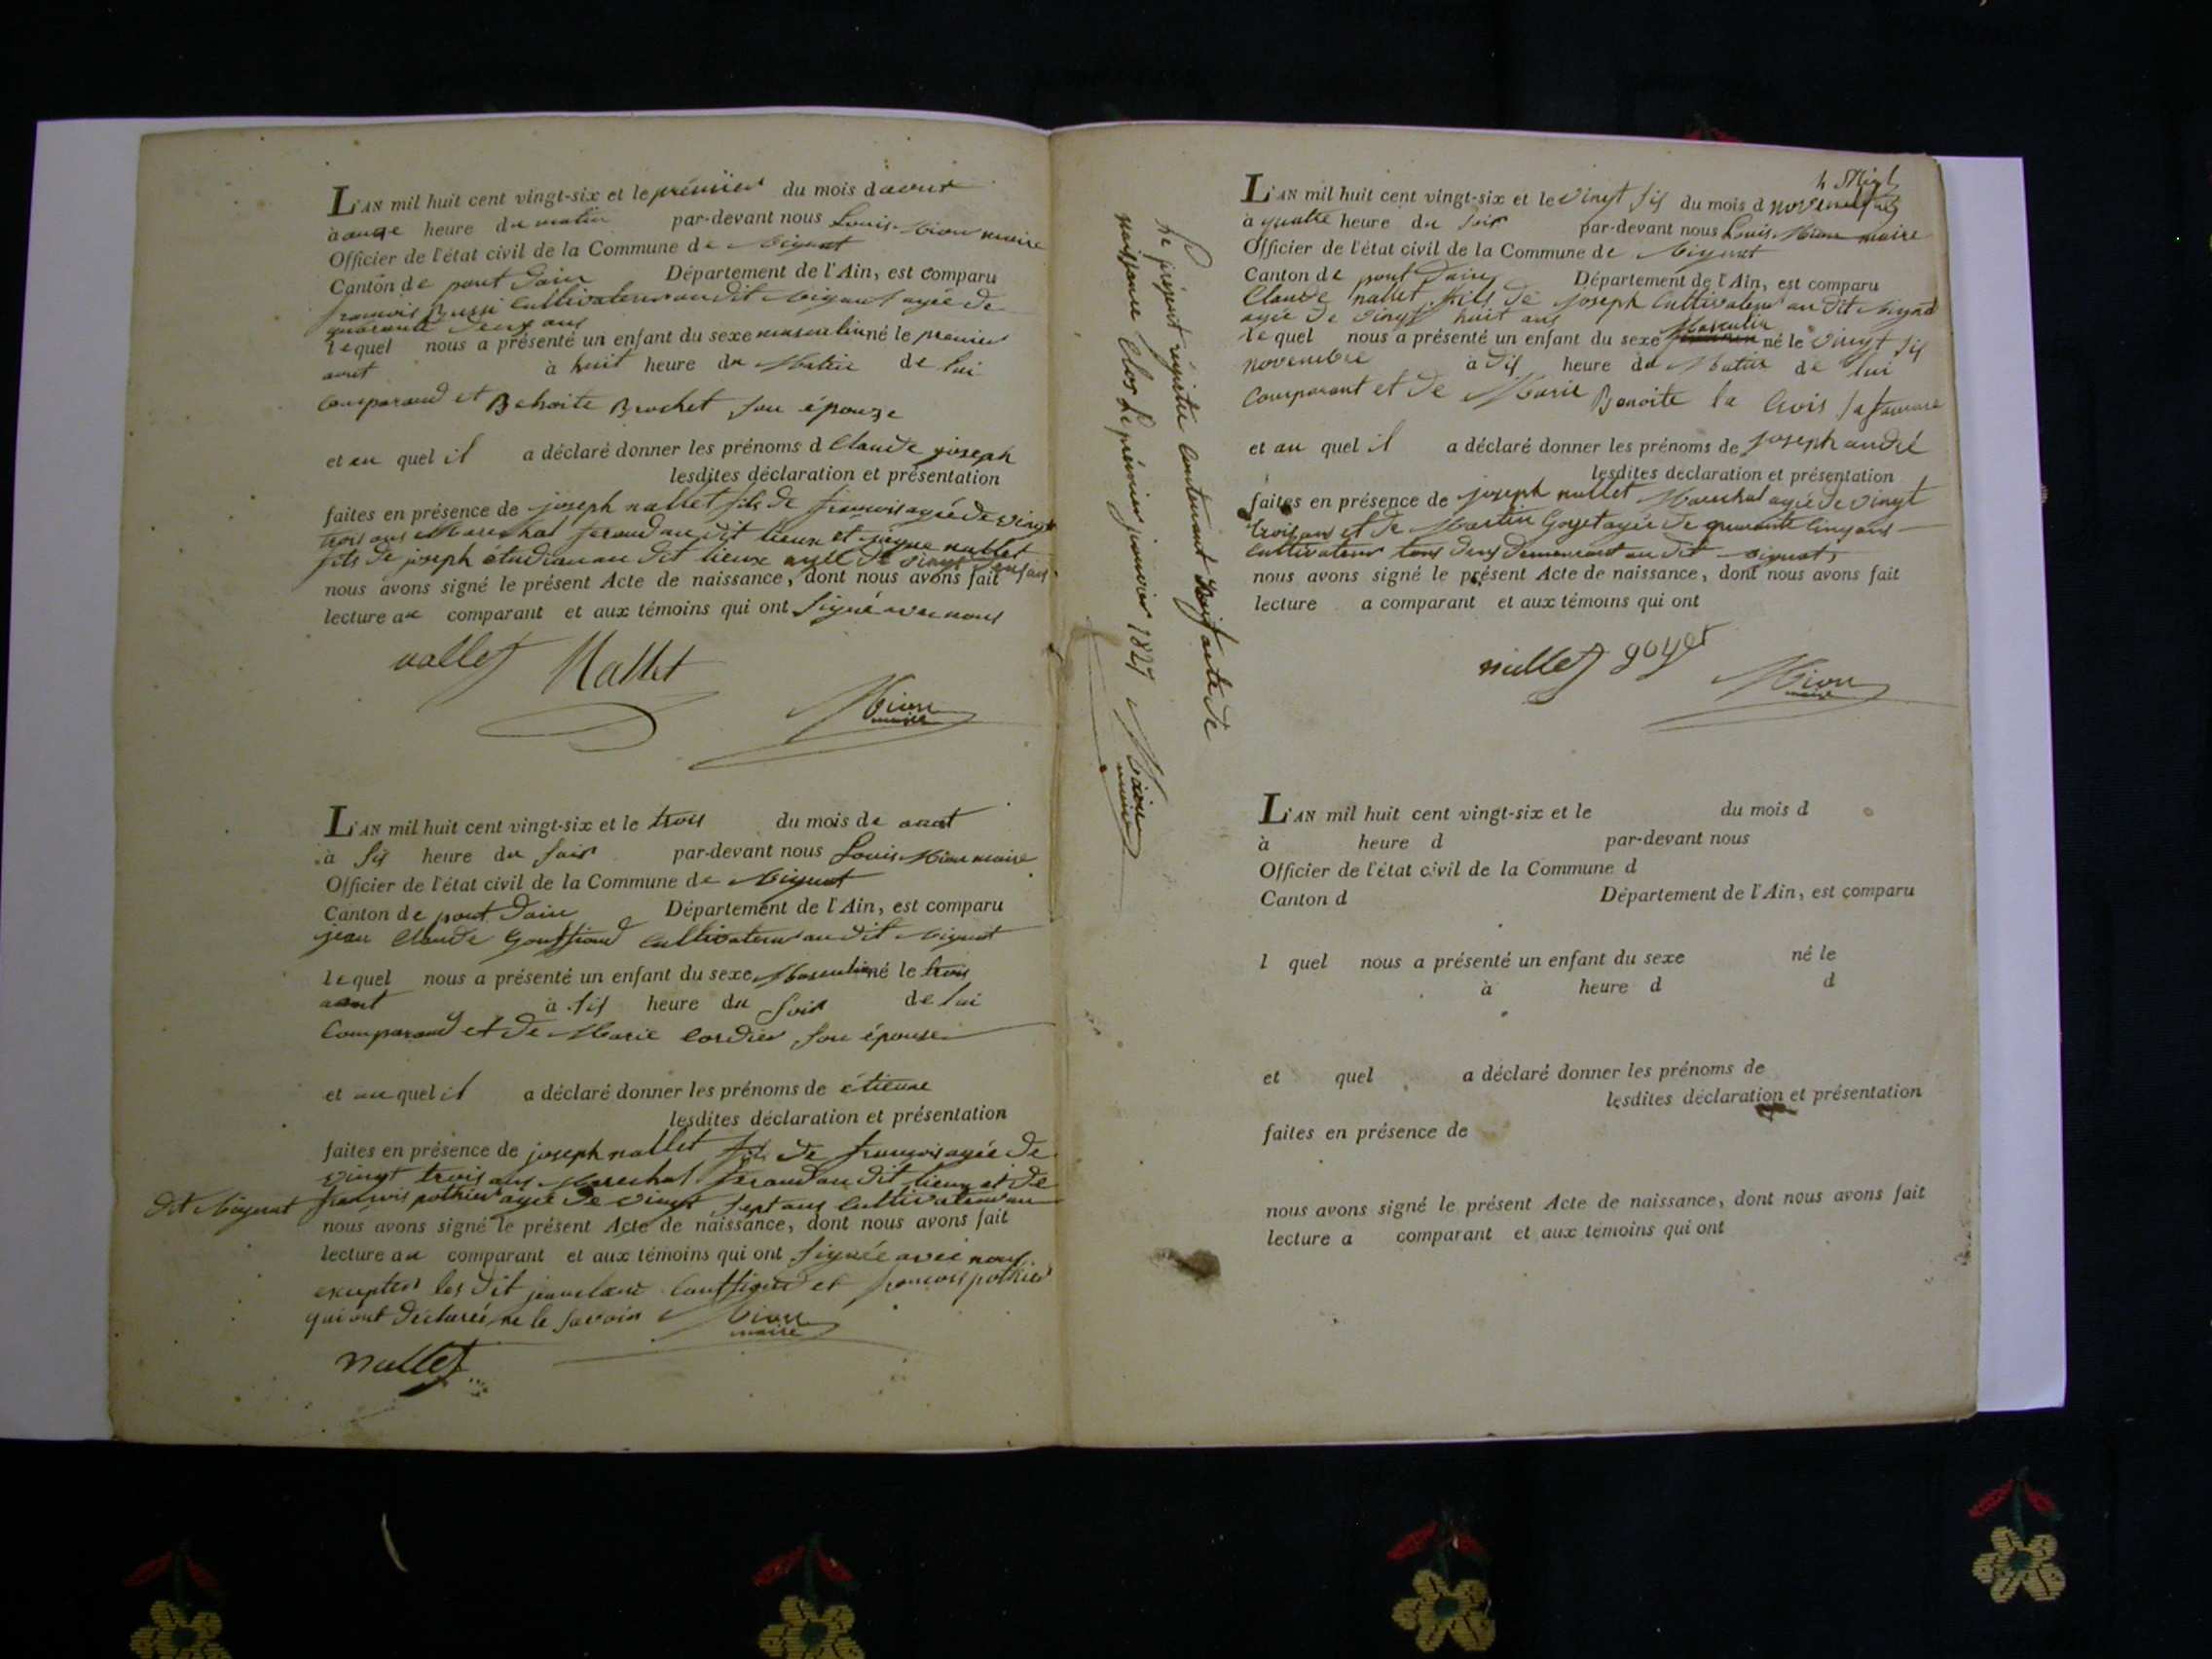 L'AN mil huit cent vingt-six et le prémier du mois d avril
à onze heure du matin par-devant nous Louis Mion maire
Officier de l'état civil de la Commune de
Canton de pont dain Département de l'Ain, est comparu
francois Bussi cultivateur au dit agée de
quarante deux ans
lequel nous a présenté un enfant du sexe masculin né le premier
avril à huit heure du Matin de lui
comparand et Benoite Brochet son épouse
et au quel il a déclaré donner les prénoms d Claude joseph
lesdites déclaration et présentation
faites en présence de joseph nallet fils de francois agée de vingt
trois ans Mareschal ferand au dit lieux et nallet
fils de joseph étudian au dit lieux agée de vingt ans
nous avons signé le présent Acte de naissance, dont nous avons fait
lecture au comparant et aux témoins qui ont signé avec nous
nallet Nallet
Mion
maire
L'AN mil huit cent vingt-six et le trois du mois de aout
à six heure du soir par-devant nous Louis Mion maire
Officier de l'état civil de la Commune de
Canton de pont dain Département de l'Ain, est comparu
jean Claude cultivateur au dit
lequel nous a présenté un enfant du sexe Masculin né le trois
aout à six heure du soir de lui
comparand et de Marie cordier son épouse
et au quel il a déclaré donner les prénoms de étienne
lesdites déclaration et présentation
faites en présence de joseph nallet fils de francois agée de
vingt trois ans Mareschal ferand au dit lieux et de
francois pothier agée de vingt sept ans cultivateur au
dit
nous avons signé le présent Acte de naissance, dont nous avons fait
lecture au comparant et aux témoins qui ont signée avec nous
excepter les dit jean claude et francois pothier
qui ont déclarée ne le savoir Mion
maire
nallet
Le présent régistre contenant acte de
naissance clos le prémier janvier 1827 Mion
maire
L'AN mil huit cent vingt-six et le vingt six du mois d novembre
à quatre heure du soir par-devant nous Louis Mion maire
Officier de l'état civil de la Commune de
Canton de pont dain Département de l'Ain, est comparu
Claude nallet fils de joseph cultivateur au dit
agée de vingt huit ans
lequel nous a présenté un enfant du sexe Masculin né le vingt six
novembre à dix heure du Matin de lui
comparant et de Marie Benoite la Croix sa famme
et au quel il a déclaré donner les prénoms de joseph andré
lesdites declaration et présentation
faites en présence de joseph nallet Mareschal agée de vingt
trois ans et de Martin Goyet agée de quarante cinq ans
cultivateur tous deux demeurant au dit
nous avons signé le présent Acte de naissance, dont nous avons fait
lecture a comparant et aux témoins qui ont
nallet goyet
Mion
maire
L'AN mil huit cent vingt-six et le du mois d
à heure d par-devant nous
Officier de l'état civil de la Commune d
Canton d Département de l'Ain, est comparu
l quel nous a présenté un enfant du sexe né le
à heure d d
et quel a déclaré donner les prénoms de
lesdites déclaration et présentation
faites en présence de
nous avons signé le présent Acte de naissance, dont nous avons fait
lecture a comparant et aux témoins qui ont